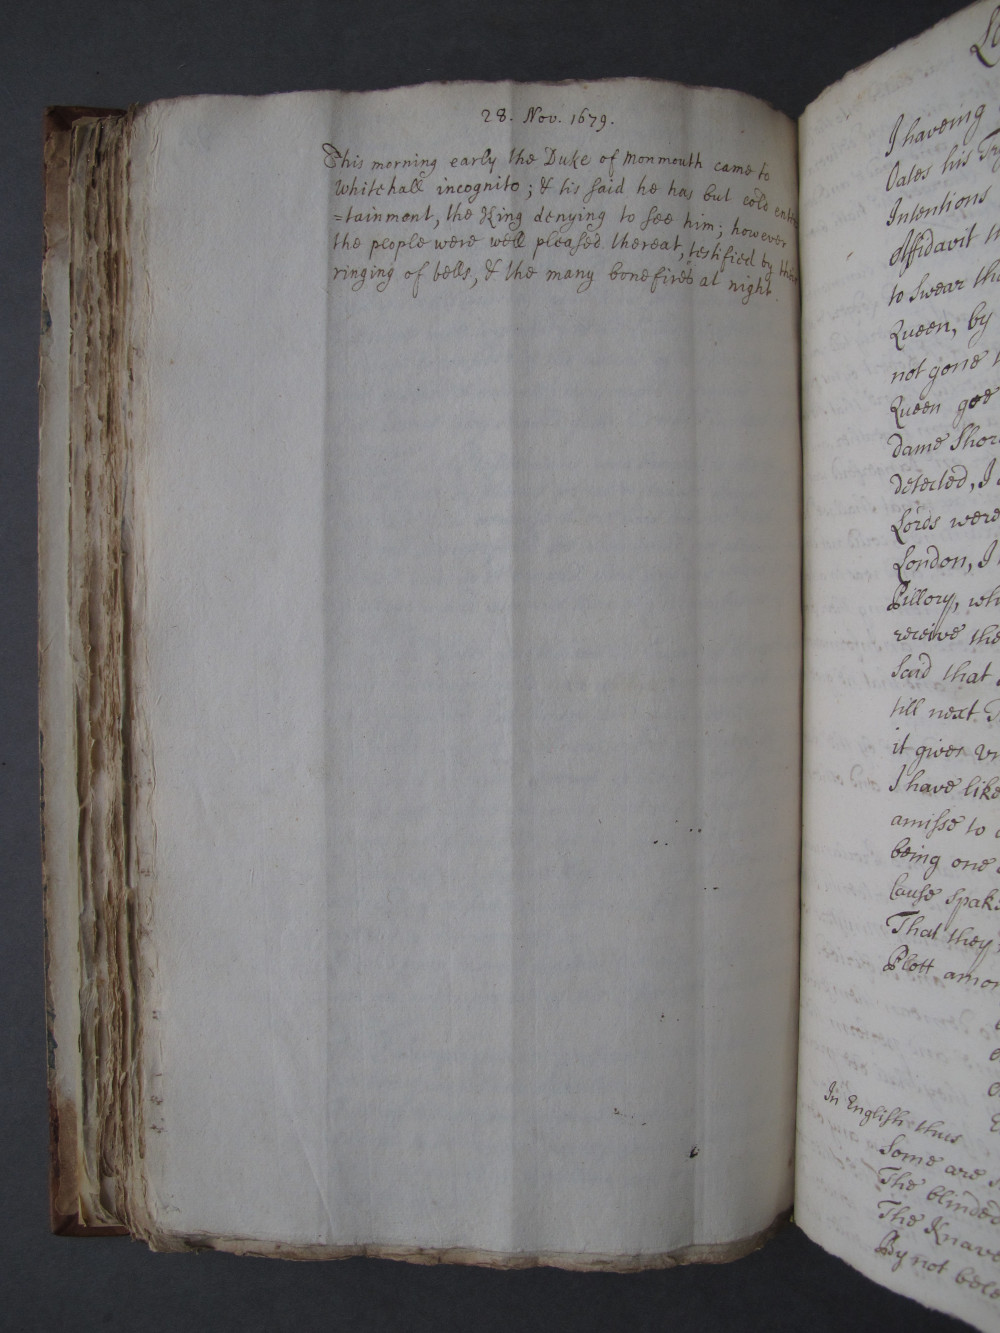 28. Nov. 1679.
This morning early the Duke of Monmouth came to
Whitehall incognito; & tis said he has but cold enter
=tainment, the King denying to see him; however
the people were well pleased thereat, testified by their
ringing of bells, & the many bonefires at night.
I haveing
Oates his
Intentions
Affidavit
to swear
Queen, by
not gone
Queen goe
dame
detected, I
Lords were
London, I
Pillory,
receive the
said that
till next
it gives
I have like
amisse to
being one
cause
That they
Plott
In English thus
Some are
The blinded
The Knave
By not